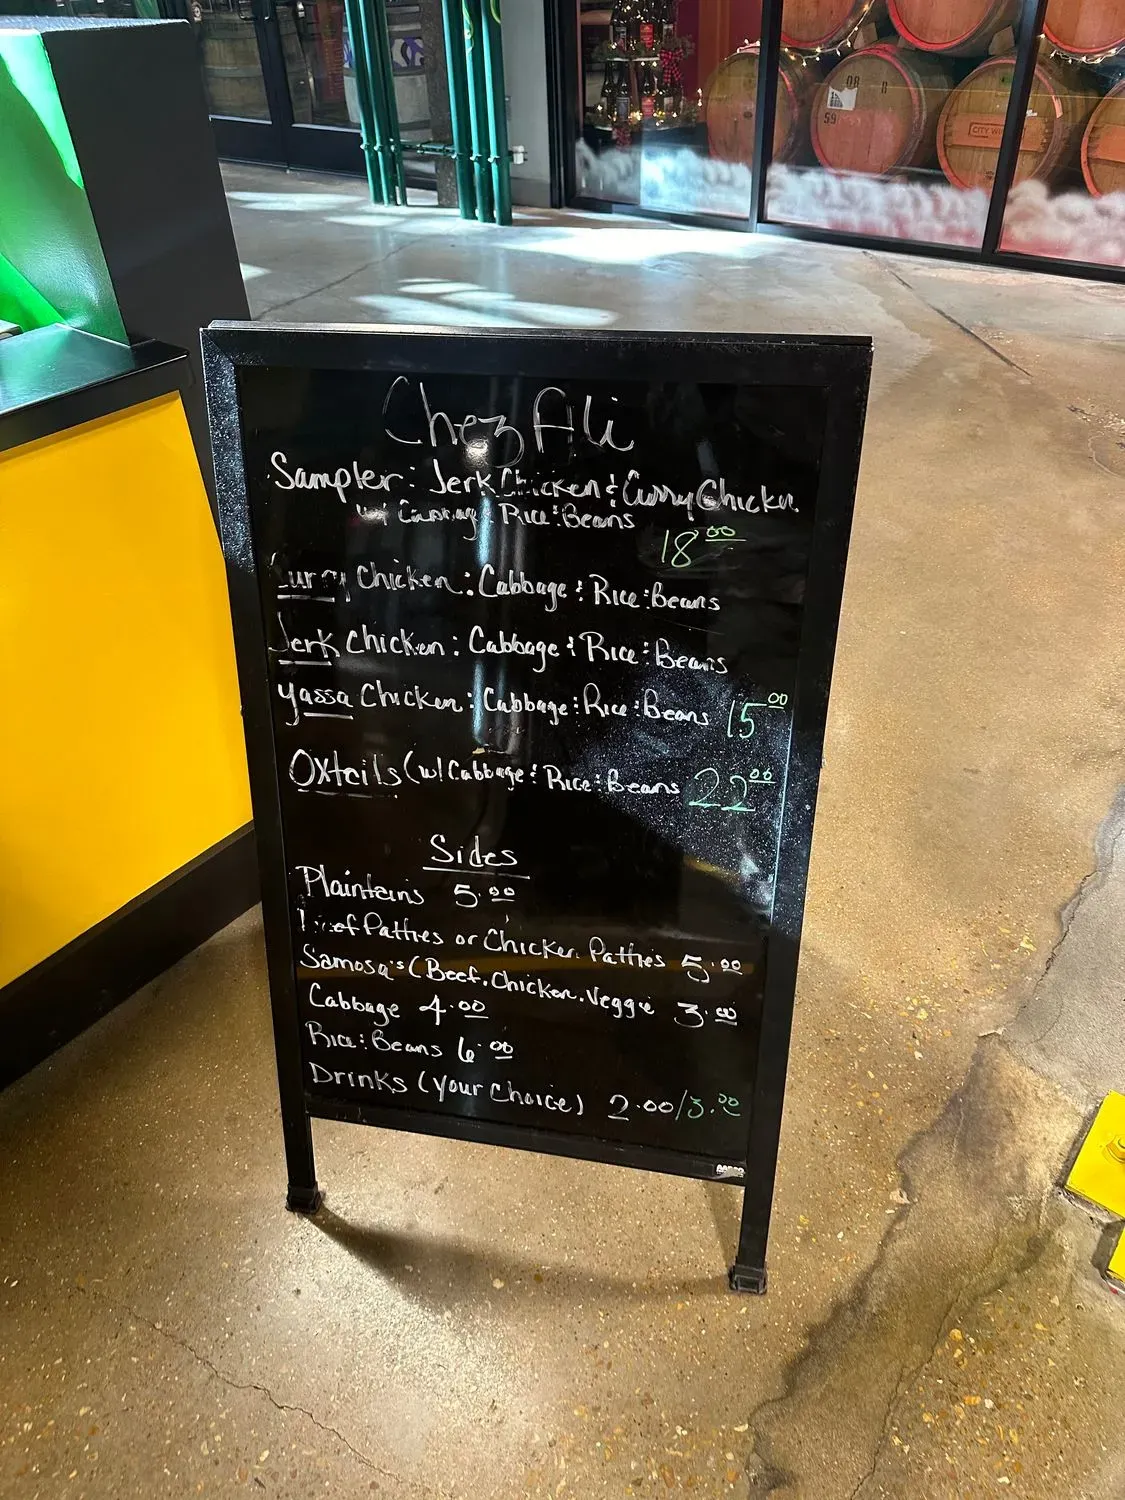 08 8
59
CITY WI
Chez Ali
Sampler: Jerk Chicken & Curry Chicken
w/ Cabbage & Rice & Beans
18.00
Curry Chicken: Cabbage & Rice & Beans
Jerk Chicken: Cabbage & Rice & Beans
Yassa Chicken: Cabbage & Rice & Beans 15.00
Oxtails (w/ Cabbage & Rice & Beans 22.00
Sides
Plainteins 5.00
Beef Patties or Chicken Patties 5.00
Samosa's (Beef. Chicken. Veggie 3.00
Cabbage 4.00
Rice & Beans 6.00
Drinks (Your Choice) 2.00/3.00